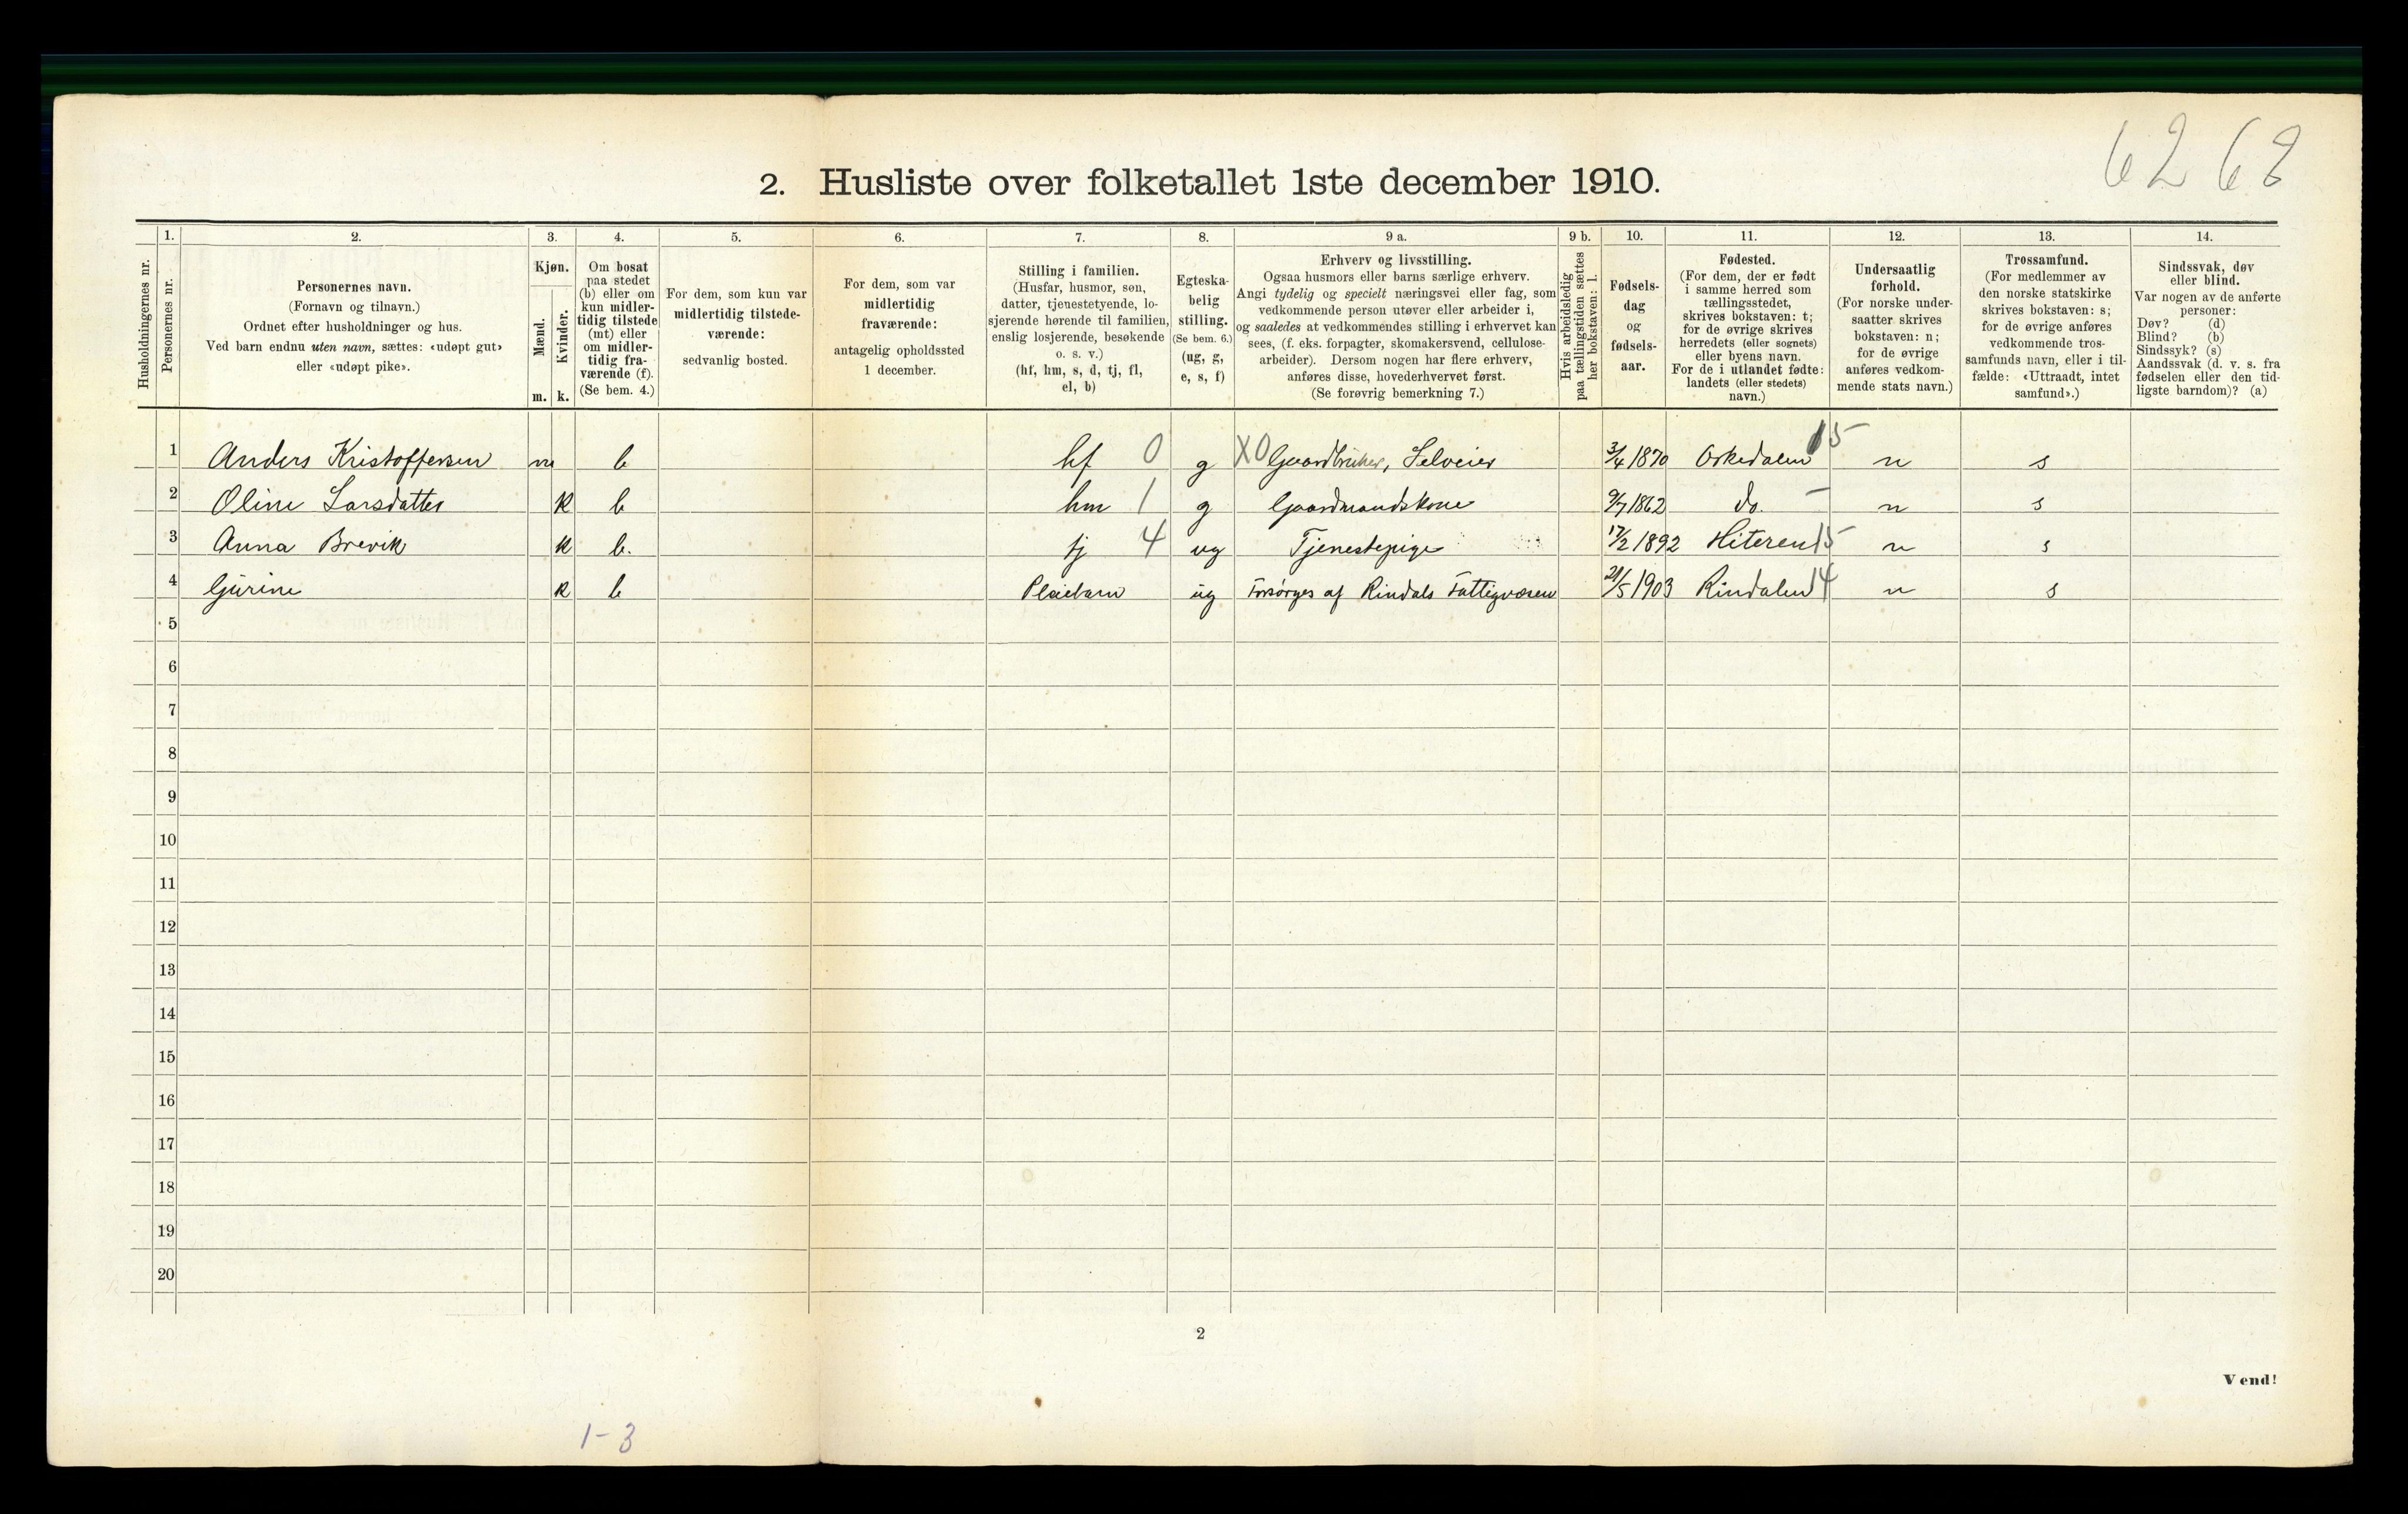 62 62
2. Husliste over folketallet 1ste december 1910.
1. 2. 3. 4. 5. 6. 7. 8. 9 a. 9 b. 10. 11. 12. 13. 14.
Husholdningernes nr.
Personernes nr.
Personernes navn.
(Fornavn og tilnavn.)
Ordnet efter husholdninger og hus.
Ved barn endnu uten navn, sættes: «udøpt gut»
eller «udøpt pike».
Kjøn.
Mænd.
Kvinder.
m. k.
Om bosat
paa stedet
(b) eller om
kun midler-
tidig tilstede
(mt) eller
om midler-
tidig fra-
værende (f).
(Se bem. 4.)
For dem, som kun var
midlertidig tilstede-
værende:
sedvanlig bosted.
For dem, som var
midlertidig
fraværende:
antagelig opholdssted
1 december.
Stilling i familien.
(Husfar, husmor, søn,
datter, tjenestetyende, lo-
sjerende hørende til familien,
enslig losjerende, besøkende
o. s. v.)
(hf, hm, s, d, tj, fl,
el, b)
Egteska-
belig
stilling.
(Se bem. 6.)
(ug, g,
e, s, f)
Erhverv og livsstilling.
Ogsaa husmors eller barns særlige erhverv.
Angi tydelig og specielt næringsvei eller fag, som
vedkommende person utøver eller arbeider i,
og saaledes at vedkommendes stilling i erhvervet kan
sees, (f. eks. forpagter, skomakersvend, cellulose-
arbeider). Dersom nogen har flere erhverv,
anføres disse, hovederhvervet først.
(Se forøvrig bemerkning 7.)
Hvis arbeidsledig
paa tællingstiden sættes
her bokstaven: l.
Fødsels-
dag
og
fødsels-
aar.
Fødested.
(For dem, der er født
i samme herred som
tællingsstedet,
skrives bokstaven: t;
for de øvrige skrives
herredets (eller sognets)
eller byens navn.
For de i utlandet fødte:
landets (eller stedets)
navn.)
Undersaatlig
forhold.
(For norske under-
saatter skrives
bokstaven: n;
for de øvrige
anføres vedkom-
mende stats navn.)
Trossamfund.
(For medlemmer av
den norske statskirke
skrives bokstaven: s;
for de øvrige anføres
vedkommende tros-
samfunds navn, eller i til-
fælde: «Uttraadt, intet
samfund».)
Sindssvak, døv
eller blind.
Var nogen av de anførte
personer:
Døv? (d)
Blind? (b)
Sindssyk? (s)
Aandssvak (d. v. s. fra
fødselen eller den tid-
ligste barndom)? (a)
1 Anders Kristoffersen m b hf 0 g X0 Gaardbruker, Selveier 3/4 1870 Orkedalen 15 n s
2 Oline Larsdatter k b hm 1 g Gaardmandskone 9/7 1862 do. – n s
3 Anna Brevik k b. tj 4 ug Tjenestepige 17/2 1892 Hiteren 15 n s
4 Gurine k b Pleiebarn ug Forsørges af Rindals Fattigvæsen 21/5 1903 Rindalen 14 n s
5
6
7
8
9
10
11
12
13
14
15
16
17
18
19
20
2
Vend!
1-3